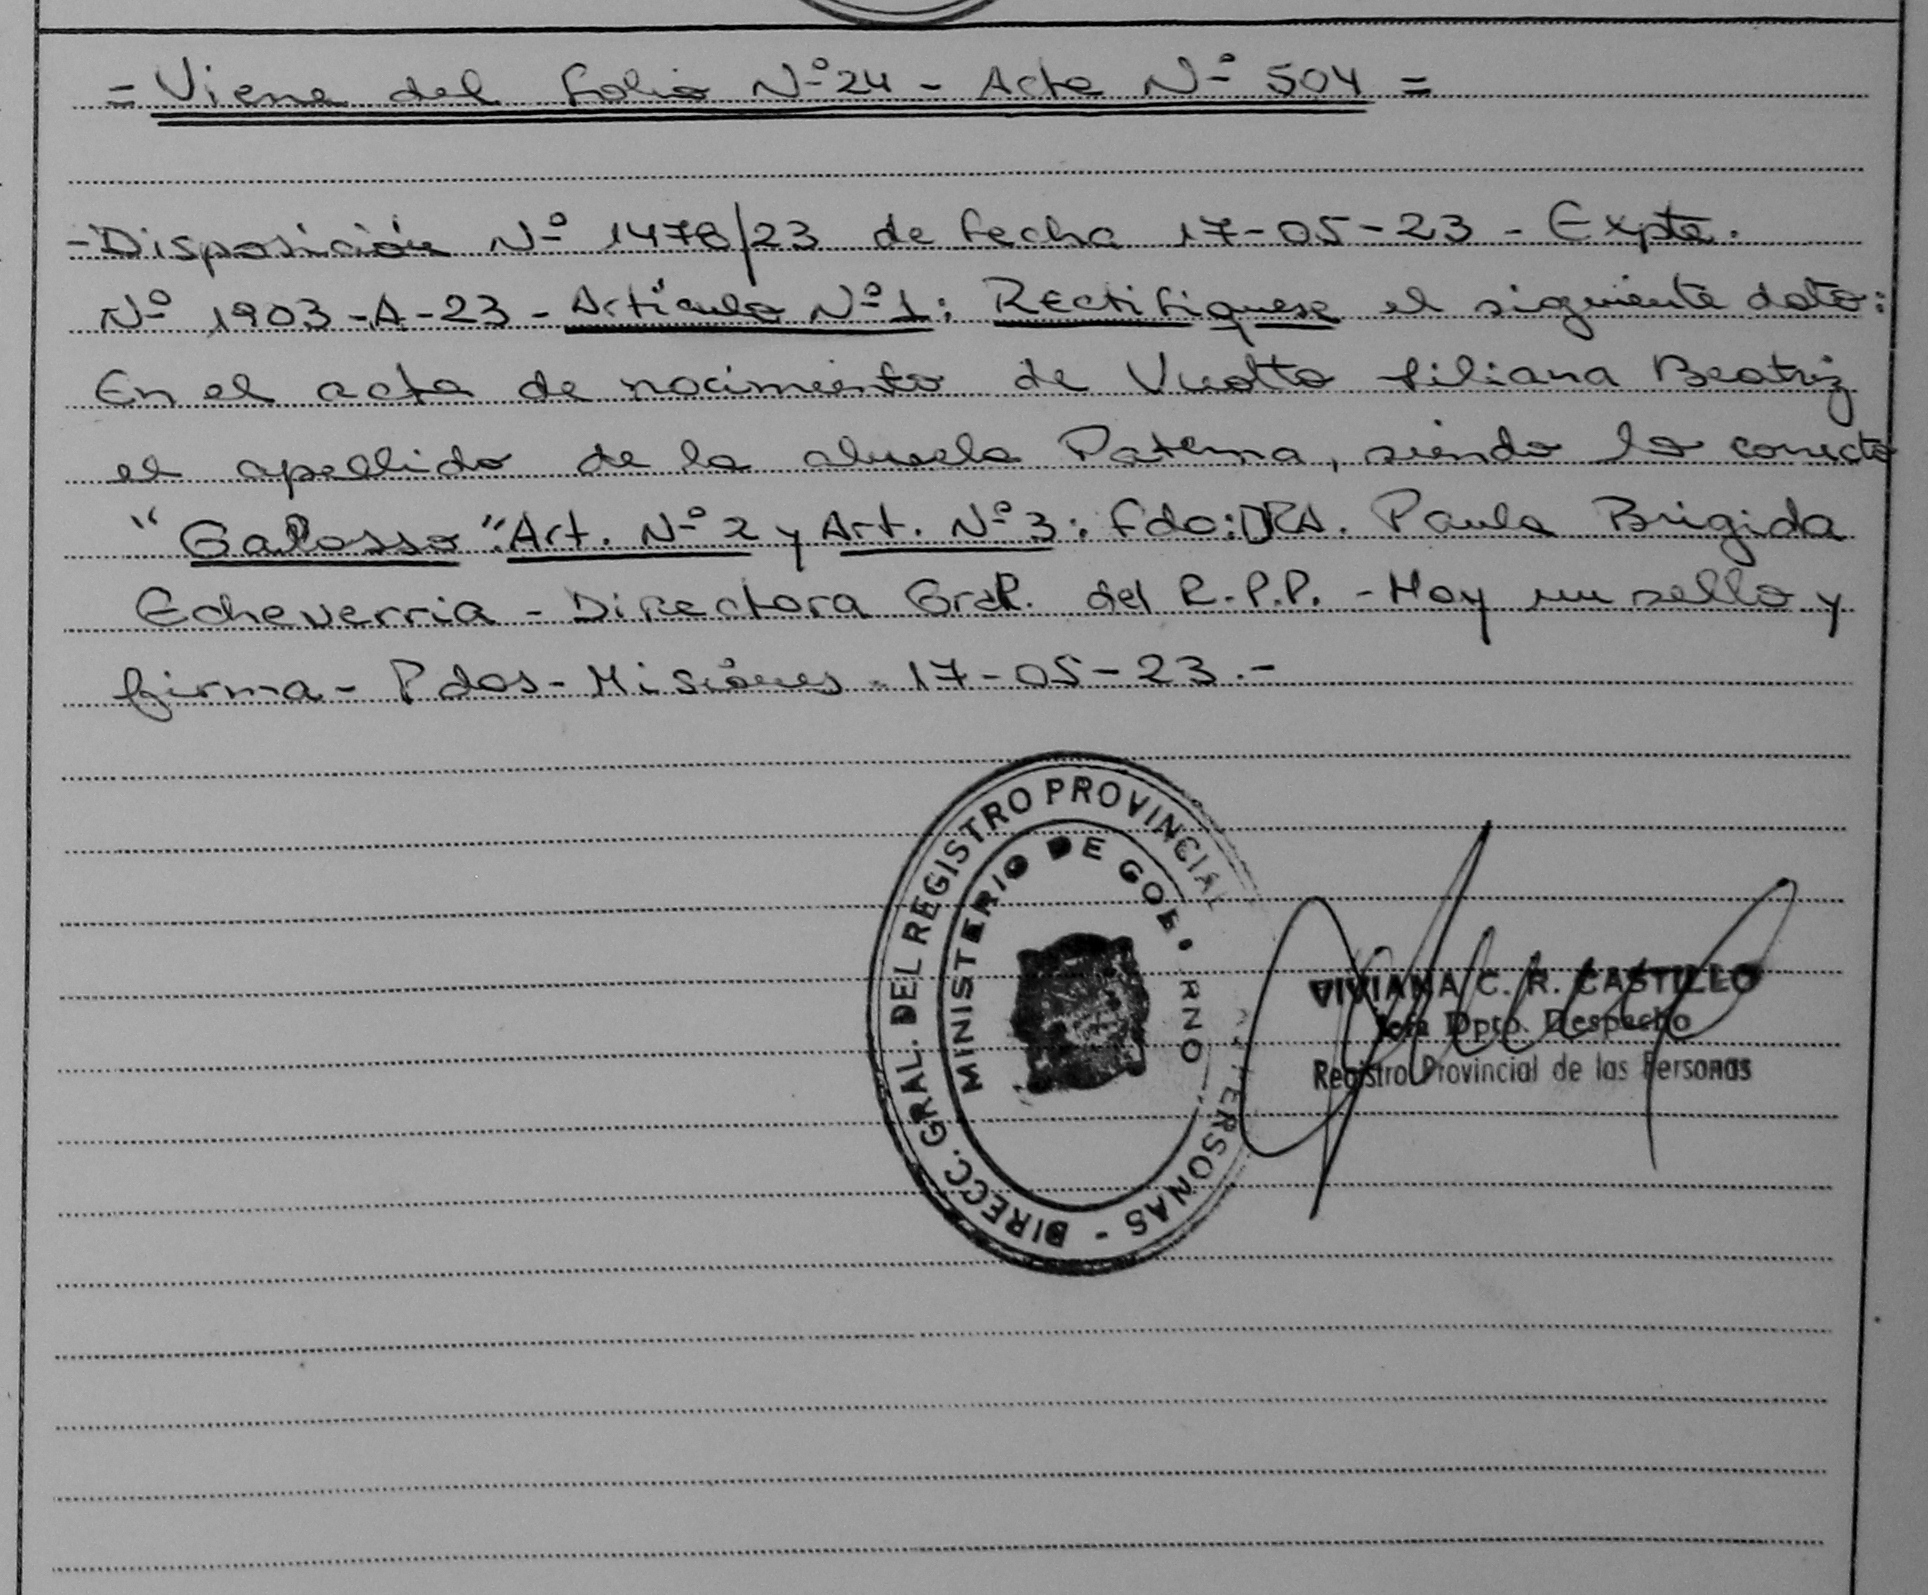 = Viene del folio Nº 24 - Acta Nº 504 =
- Disposición Nº 1478/23 de fecha 17-05-23 - Expte.
Nº 1903-A-23 - Artículo Nº 1: Rectifiquese el siguiente dato:
En el acta de nacimiento de Vuotto Liliana Beatriz
el apellido de la abuela Paterna, siendo lo correcto
"Galosso". Art. Nº 2 y Art. Nº 3: Fdo: DRA. Paula Brigida
Echeverria - Directora Gral. del R.P.P. - Hay un sello y
firma - Pdas - Misiones - 17-05-23.-
DIRECC. GRAL. DEL REGISTRO PROVINCIAL PERSONAS -
MINISTERIO DE GOBIERNO
VIVIANA C. R. CASTILLO
Jefa Dpto. Despacho
Registro Provincial de las Personas